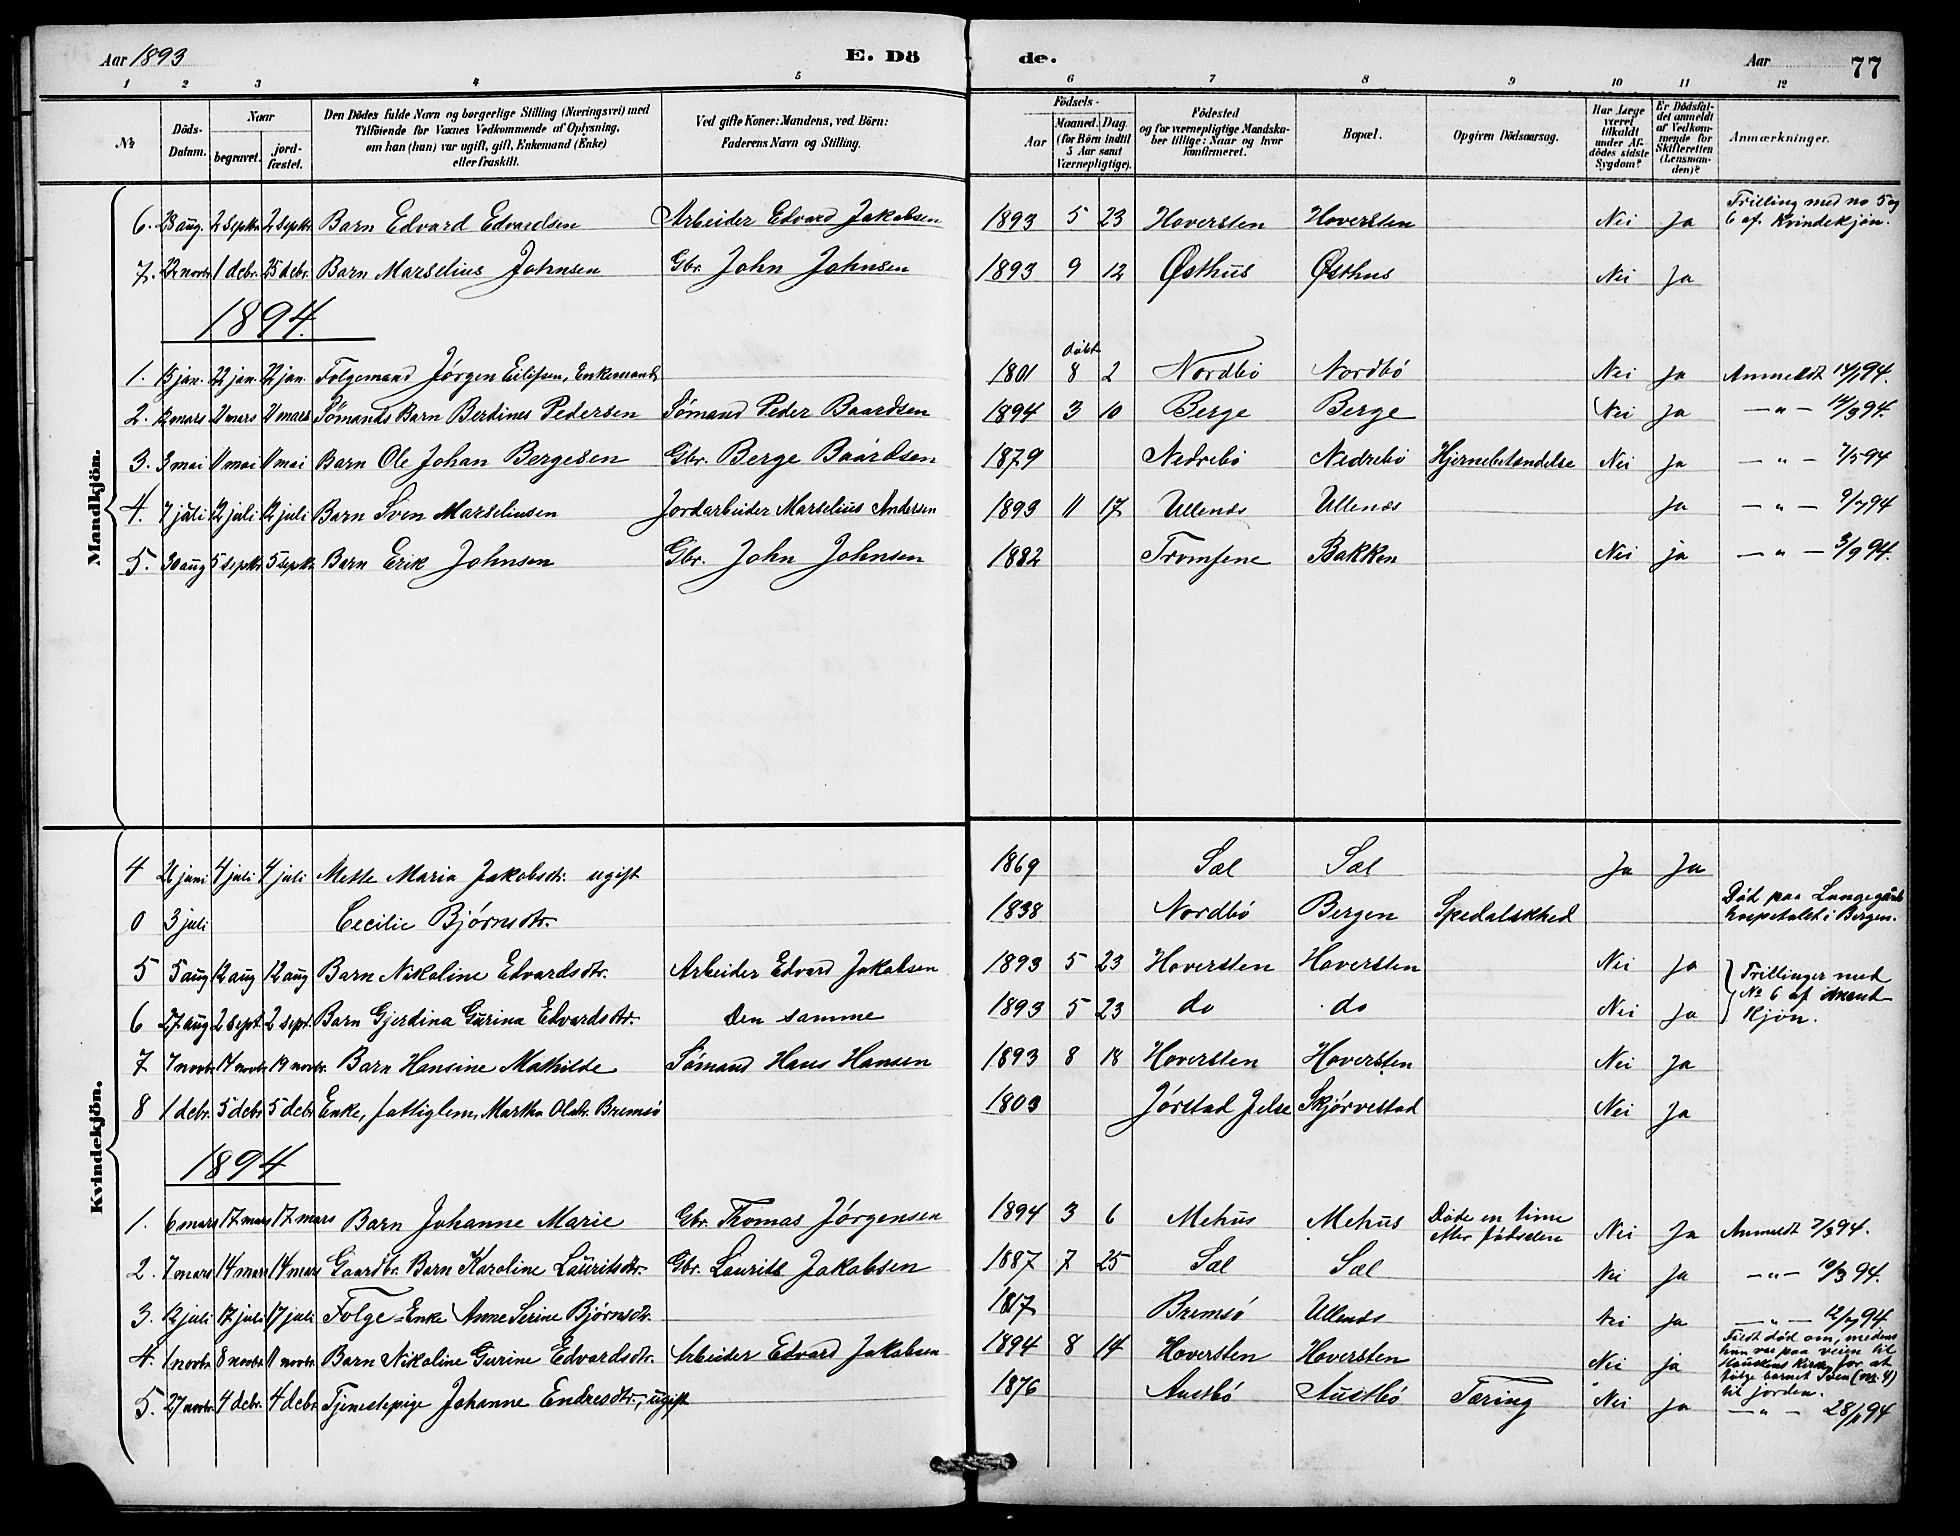 Aar 1893 E. Dö de. Aar 77
1 2 3 4 5 6 7 8 9 10 11 12
№ Döds-Datum. Naar begravet. jord-fæstet. Den Dödes fulde Navn og borgerlige Stilling (Næringsvei) med Tilföiende for Voxnes Vedkommende af Oplysning, om han (hun) var ugift, gift, Enkemand (Enke) eller fraskilt. Ved gifte Koner: Mandens, ved Börn: Faderens Navn og Stilling. Födsels- Aar Maaned. Dag. (for Börn indtil 5 Aar samt Værnepligtige). Födested og for værnepligtige Mandskaber tillige: Naar og hvor konfirmeret. Bopæl. Opgiven Dödsaarsag. Har Læge været tilkaldt under Afdödes sidste Sygdom? Er Dödsfaldet anmeldt af Vedkommende for Skifteretten (Lensmanden)? Anmærkninger.
Mandkjön.
6. 28 aug. 2 septr. 2 septr. Barn Edvard Edvardsen Arbeider Edvard Jakobsen 1893 5 23 Hoversten Hoversten Nei Ja Trilling med no 5 og 6 af Kvindekjön.
7. 22 novbr. 1 debr. 25 debr. Barn Marselius Johnsen Gbr. John Johnsen 1893 9 12 Østhus Østhus Nei Ja
1894.
1. 13 jan. 22 jan. 22 jan. Folgemand Jörgen Eilifsen, Enkemand 1801 döbt 8 2 Nordbö Nordbö Nei Ja Anmeldt 14/1 94.
2. 12 mars 21 mars 21 mars Sömands Barn Berdines Pedersen Sömand Peder Baardsen 1894 3 10 Berge Berge Nei Ja —"— 14/3 94.
3. 3 mai 11 mai 11 mai Barn Ole Johan Bergesen Gbr. Berge Baardsen 1879 Nedrebö Nedrebö Hjernebetændelse Nei Ja —"— 7/5 94
4. 7 juli 12 juli 12 juli Barn Sven Marseliusen Jordarbeider Marselius Andersen 1893 11 17 Ullenes Ullenes Ja —"— 9/7 94
5. 30 aug 5 septr. 5 septr. Barn Erik Johnsen Gbr. John Johnsen 1882 Tromsene Bakken Nei ja —"— 3/9 94.
Kvindekjön.
4 26 juni 4 juli 4 juli Mette Maria Jakobsdtr. ugift 1869 Sæl Sæl Ja Ja
0 3 juli Cecilie Björnsdtr. 1838 Nordbö Bergen Spedalskhed Död paa Lungegaards hospitalet i Bergen.
5 5 aug 12 aug 12 aug Barn Nikoline Edvardsdtr. Arbeider Edvard Jakobsen 1893 5 23 Hoversten Hoversten Nei Ja Trillinger med
6 27 aug 2 sept. 2 sept. Barn Gjerdina Gurina Edvardsdtr. Den samme 1893 5 23 do do Nei Ja № 6 af Mandkjön.
7 7 novbr. 17 novbr. 19 novbr. Barn Hansine Mathilde Sömand Hans Hansen 1893 8 18 Hoversten Hoversten Nei Ja
8 1 debr. 5 debr. 5 debr. Enke, fattiglem, Martha Olsdtr. Bremsö 1803 Jörstad Jelse Skjörvestad Nei Ja
1894
1. 6 mars 17 mars 17 mars Barn Johanne Marie Gbr. Thomas Jörgensen 1894 3 6 Mehus Mehus Döde en time efter födselen Nei Ja Anmeldt 7/3 94.
2. 7 mars 14 mars 14 mars Gaardbr. Barn Karoline Lauritsdtr. Gbr. Laurits Jakobsen 1887 7 25 Sæl Sæl Nei Ja —"— 10/3 94.
3. 12 juli 17 juli 17 juli Folge-Enke Anne Serine Björnsdtr. 1817 Bremsö Ullenes Nei ja —"— 12/7 94
4. 1 novbr. 8 novbr. 11 novbr. Barn Nikoline Gurine Edvardsdtr. Arbeider Edvard Jakobsen 1894 8 14 Hoversten Hoversten Nei ja Faldt död om, medens hun var paa veien til Kirke for at fölge barnet Sven (no. 4) til jorden.
5. 27 novbr. 4 debr. 4 debr. Tjenestepige Johanne Endresdtr., ugift 1876 Austbö Austbö Tæring Nei ja —"— 28/11 94